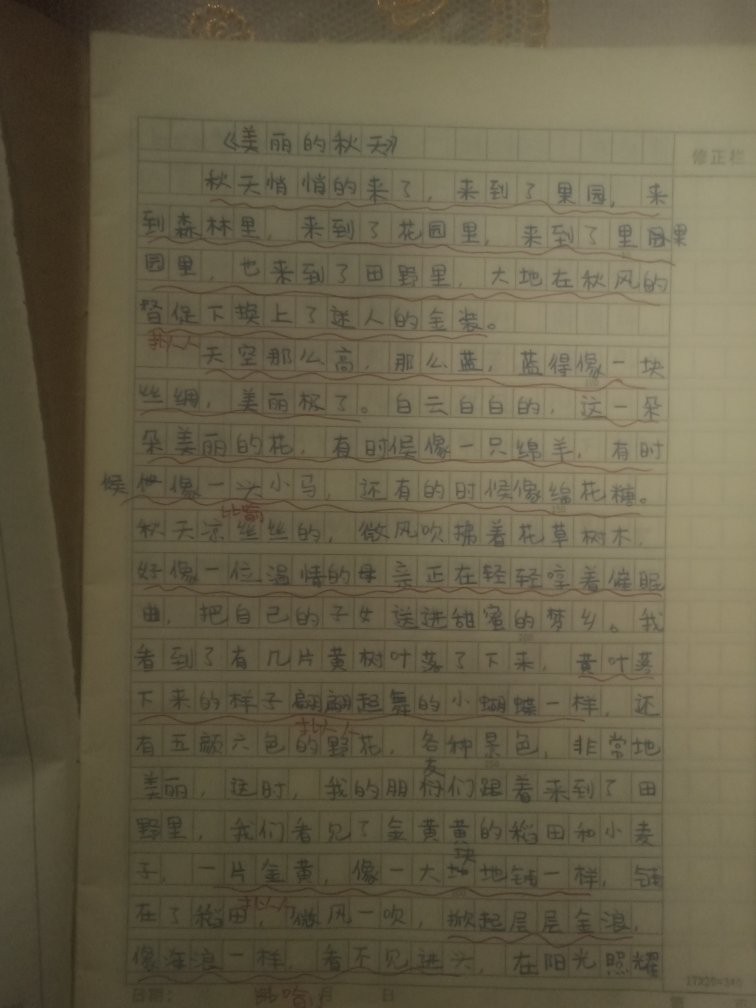 《美丽的秋天》
修正栏
秋天悄悄的来了，来到了果园，来
到森林里，来到了花园里，来到了里果
园里，也来到了田野里，大地在秋风的
督促下换上了迷人的金装。
拟人
天空那么高，那么蓝，蓝得像一块
丝绸，美丽极了。白云白白的，这一朵
朵美丽的花，有时候像一只绵羊，有时
候像一头小马，还有的时候像绵花糖。
比喻
秋天凉丝丝的，微风吹拂着花草树木，
好像一位温情的母亲正在轻轻哼着催眠
曲，把自己的子女送进甜蜜的梦乡。我
看到了有几片黄树叶落了下来，黄叶落
下来的样子翩翩起舞的小蝴蝶一样，还
拟人
有五颜六色的野花，各种景色，非常地
美丽，这时，我的朋友们跟着来到了田
野里，我们看见了金黄黄的稻田和小麦
子，一片金黄，像一大块地铺一样，铺
在了稻田，微风一吹，掀起层层金浪，
像海浪一样，看不见进头，在阳光照耀
日期： 比喻 月 日
17X20=340